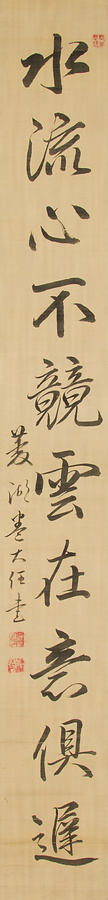 水流心不競雲在意俱遲
菱湖卷大任書